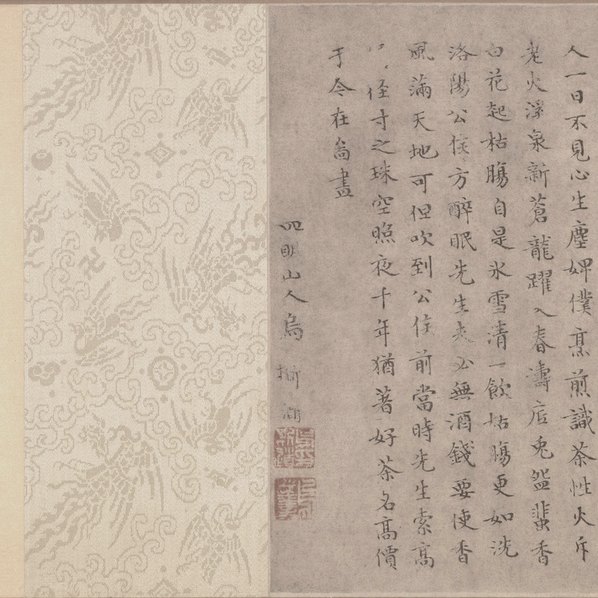 人一日不見心生塵婢僕烹煎識茶性火斥
老火泉新蒼龍躍入春濤兎盌蜚香
白花起枯腸自是氷雪清一飲枯腸更如洗
洛陽公侯方醉眠先生未必無酒錢要使香
風滿天地可但吹到公侯前當時先生索高
徑寸之珠空照夜千年猶著好茶名高價
于今在畫
四明山人烏